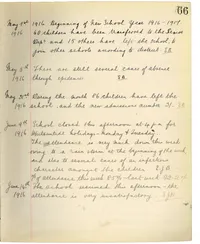 66
May 1st 1916 Beginning of New School Year 1916-1917
40 children have been transferred to the Senior
Dept and 15 others have left the School to
join other schools according to district.
May 5th 1916 There are still several cases of absence
though epidemic
May 31st 1916 During the month 06 children have left the
school, and the new admissions number 51.
June 9th 1916 School closed this afternoon at 4 p.m. for
Whitsuntide holidays - Monday & Tuesday.
The attendance is very much down this week
owing to a rain storm at the beginning of the week
and also to several cases of an infectious
character amongst the children.
% of attendance this week
June 14th 1916 The school reopened this afternoon - the
attendance is very unsatisfactory.